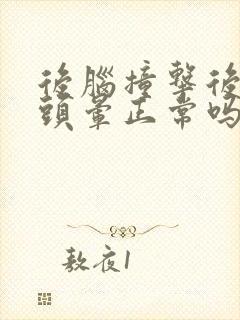 後腦撞擊後
頭暈正常嗎
敖夜1